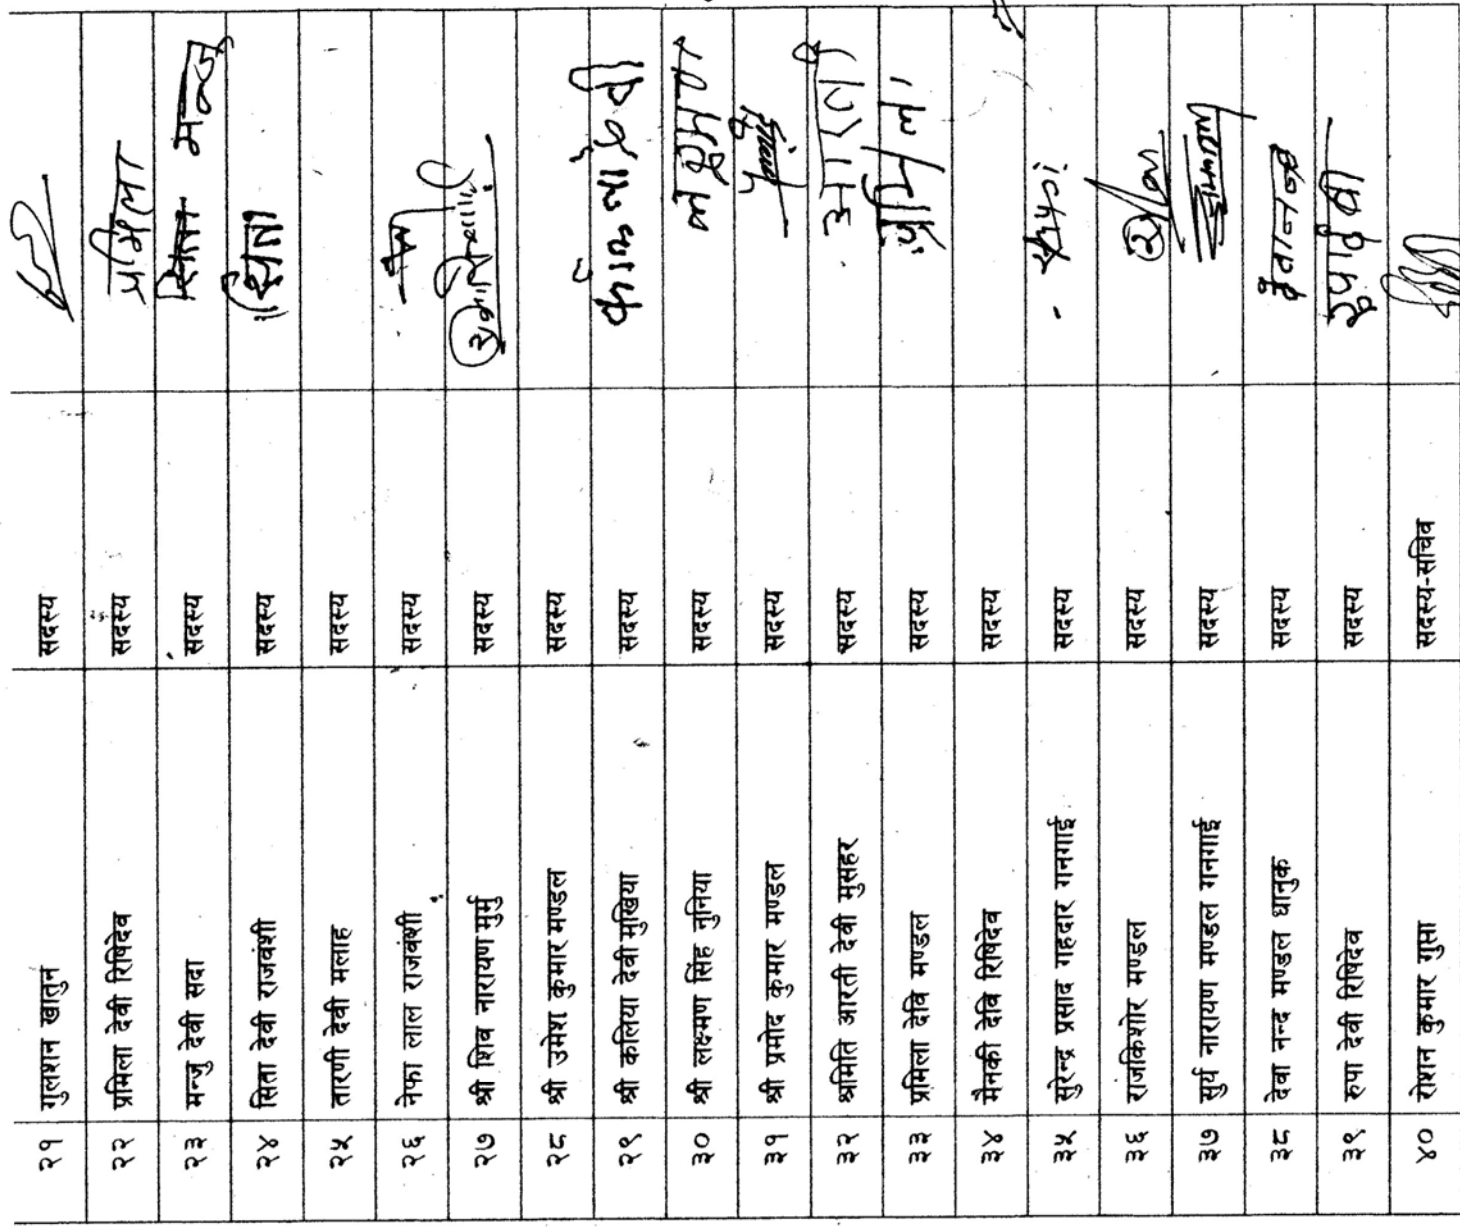 २१ गुलशन खातुन सदस्य
२२ प्रमिला देवी रिषिदेव सदस्य प्रमिला
२३ मन्जु देवी सदा सदस्य
२४ सिता देवी राजवंशी सदस्य
२५ तारणी देवी मलाह सदस्य
२६ नेफा लाल राजवंशी सदस्य
२७ श्री शिव नारायण मुर्मु सदस्य
२८ श्री उमेश कुमार मण्डल सदस्य
२९ श्री कलिया देवी मुखिया सदस्य
३० श्री लक्ष्मण सिंह नुनिया सदस्य
३१ श्री प्रमोद कुमार मण्डल सदस्य
३२ श्रमिति आरती देवी मुसहर सदस्य आरती
३३ प्रमिला देवि मण्डल सदस्य
३४ मैनकी देवि रिषिदेव सदस्य
३५ सुरेन्द्र प्रसाद गहदार गनगाई सदस्य
३६ राजकिशोर मण्डल सदस्य
३७ सुर्य नारायण मण्डल गनगाई सदस्य
३८ देवा नन्द मण्डल धानुक सदस्य
३९ रुपा देवी रिषिदेव सदस्य
४० रोशन कुमार गुप्ता सदस्य-सचिव